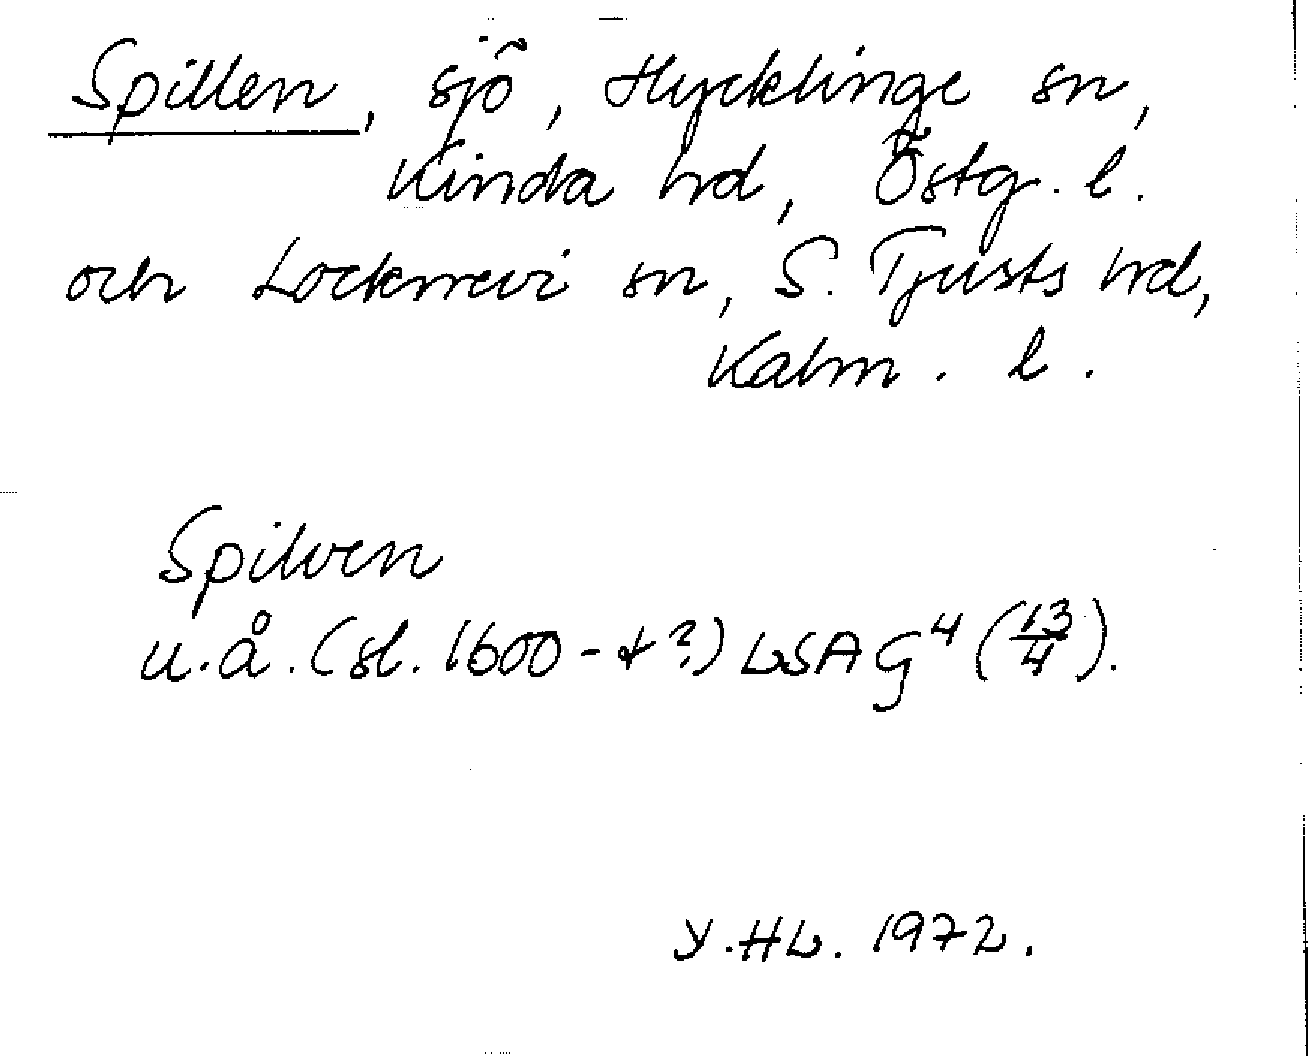 Spillen, sjö, Hycklinge sn,
Kinda hd, Östg. l.
och Locknevi sn, S. Tjusts hd,
Kalm. l.
Spilven
u.å. (sl. 1600-t?) LSA G4 (13/4).
Y.HL. 1972.